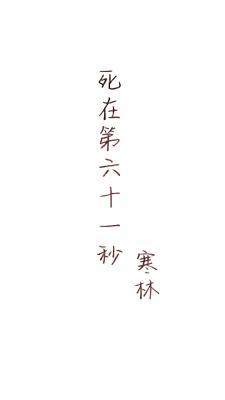 死在第六十一秒
寒林